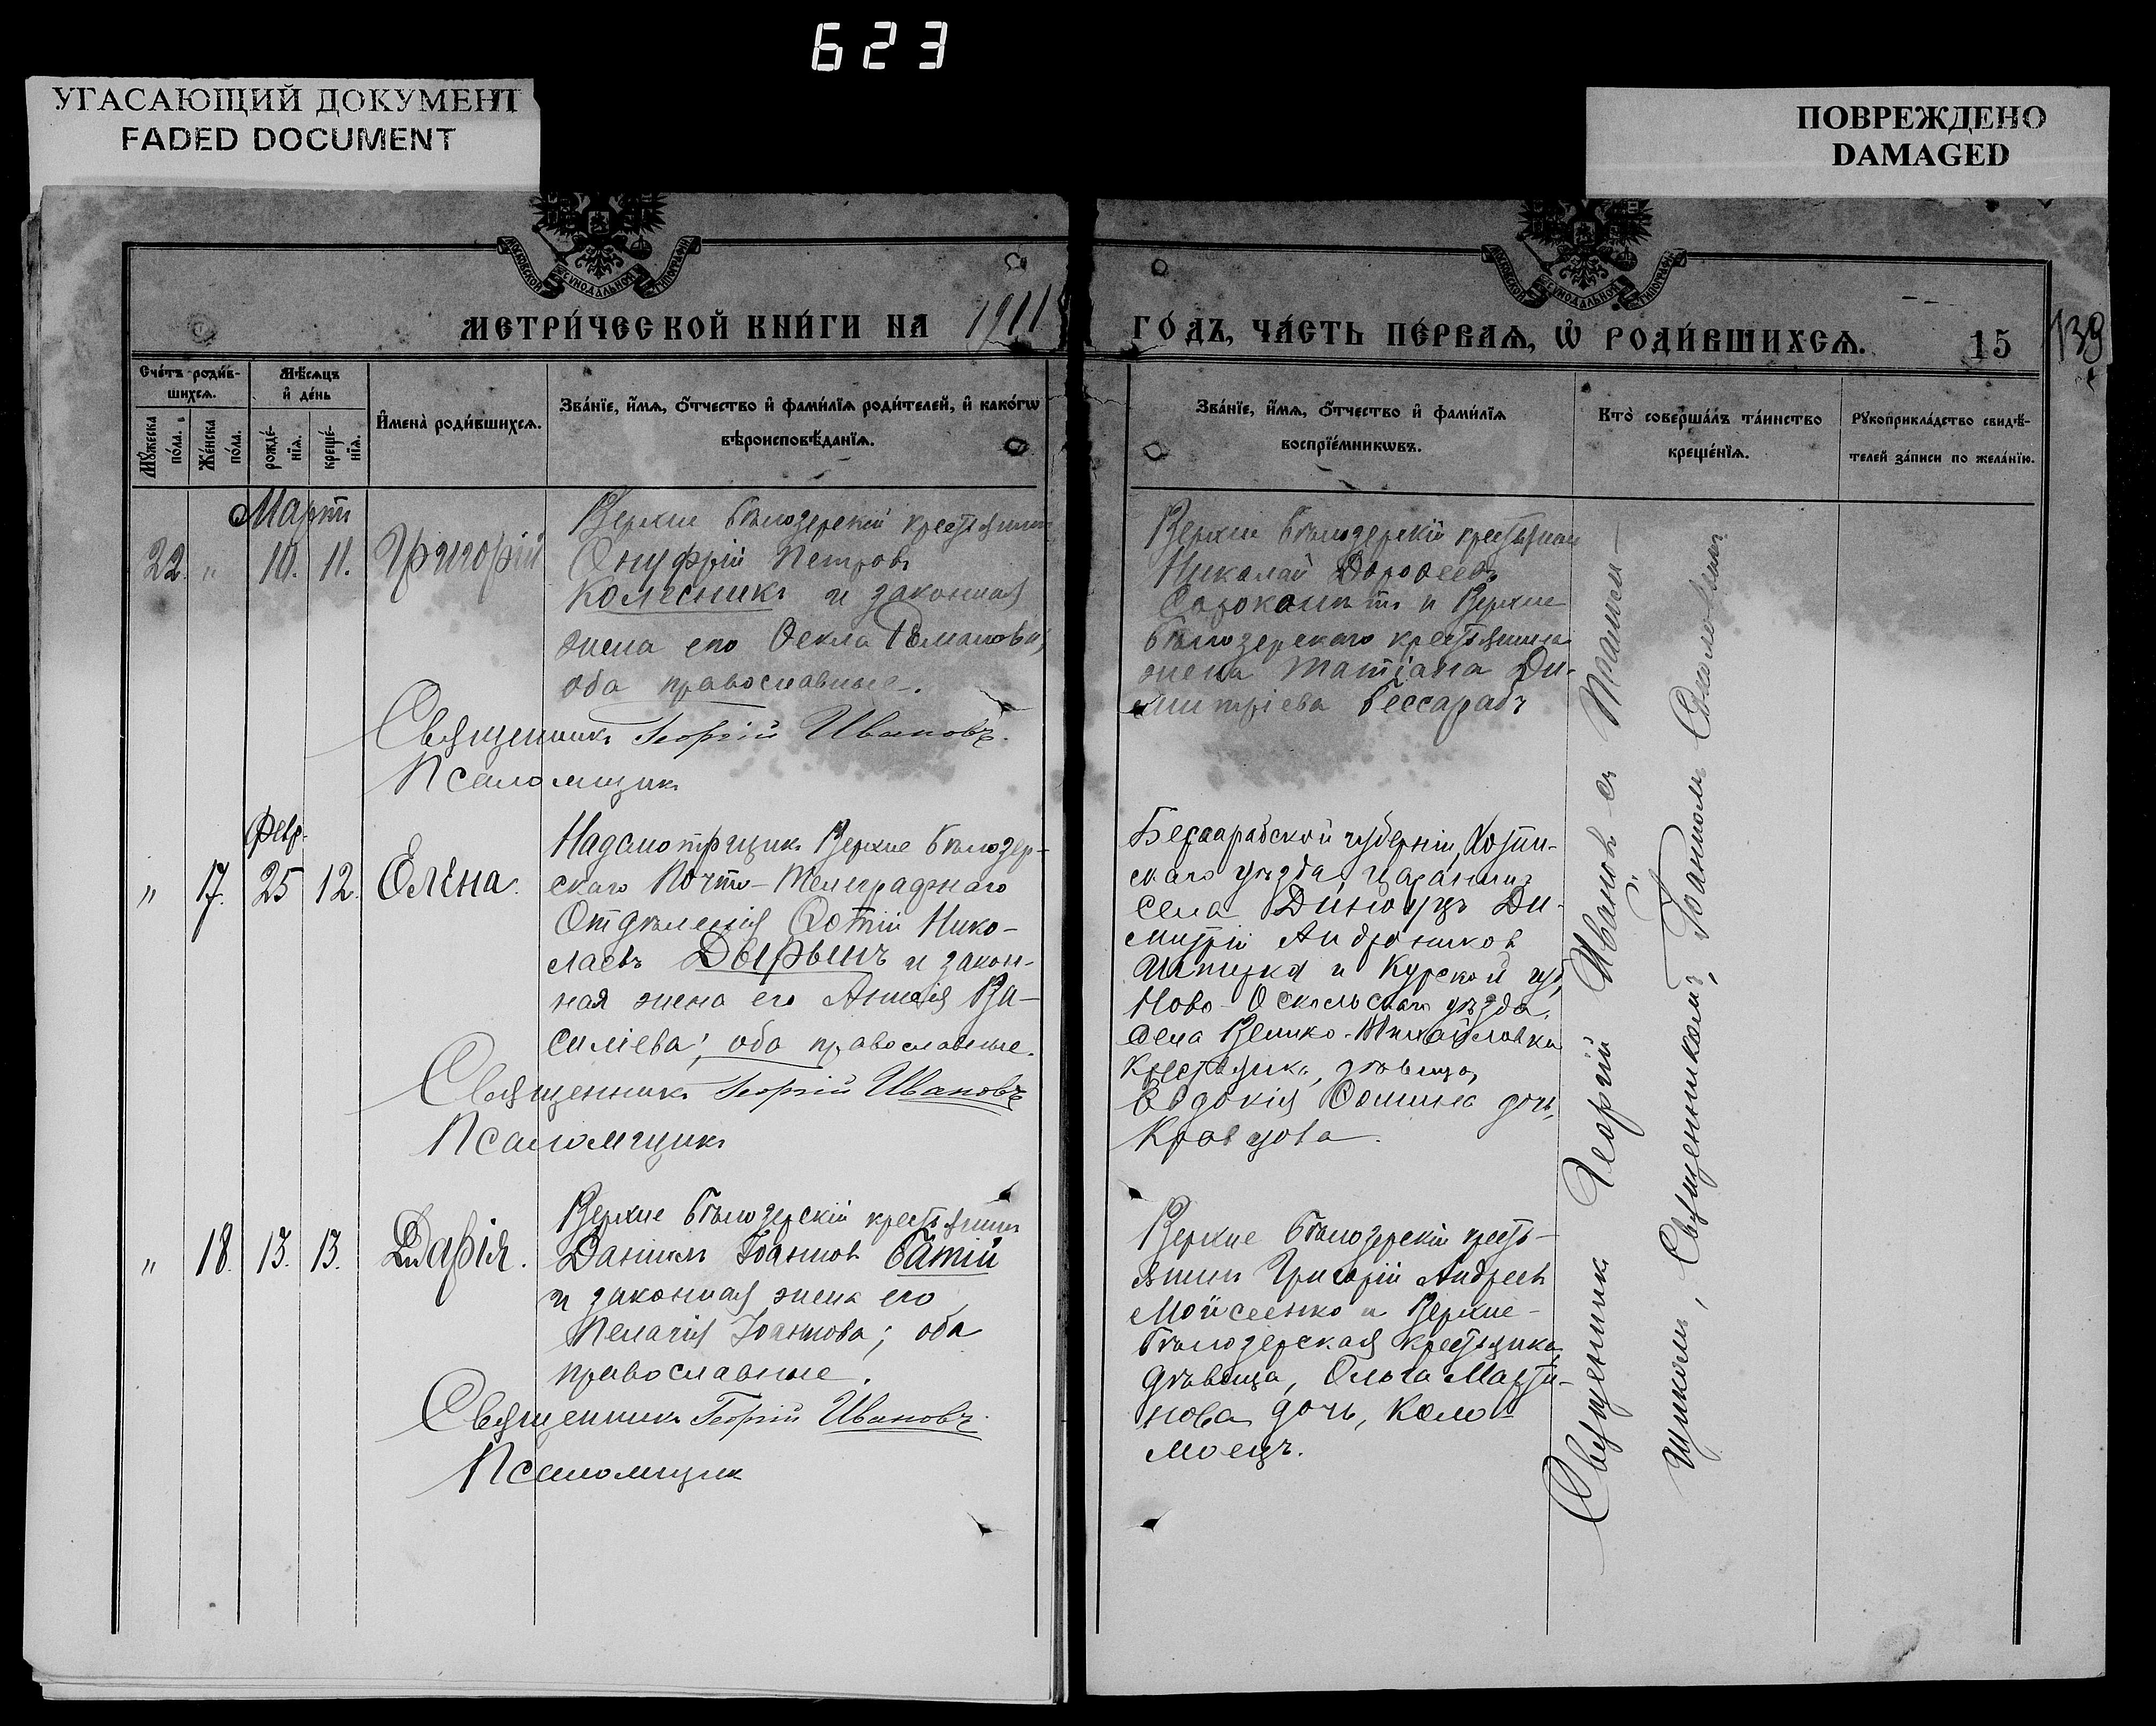 623
УГАСАЮЩИЙ ДОКУМЕНТ
FADED DOCUMENT
ПОВРЕЖДЕНО
DAMAGED
МОСКОВСКОЙ СѴНОДАЛЬНОЙ ТИПОГРАФІИ
МОСКОВСКОЙ СѴНОДАЛЬНОЙ ТИПОГРАФІИ
МЕТРИ́ЧЕСКОЙ КНИ́ГИ НА 1911
ГО́ДЪ, ЧА́СТЬ ПЕ́РВАѦ, Ѡ҆ РОДИ́ВШИХСѦ. 15
139
Сче́тъ роди́в-
шихсѧ.
Мѣ́сѧцъ
и҆ де́нь
Мꙋ́жеска по́ла.
Же́нска по́ла.
рожде́-нїѧ.
креще́-нїѧ.
И҆мена̀ роди́вшихсѧ.
Зва́нїе, и҆́мѧ, ѻ҆́тчество и҆ фами́лїѧ роди́телей, и҆ како́гѡ
вѣроисповѣ́данїѧ.
Зва́нїе, и҆́мѧ, ѻ҆́тчество и҆ фами́лїѧ
воспрїе́мникѡвъ.
Кто̀ соверша́лъ та́инство
креще́нїѧ.
Рꙋкоприкла́дство свидѣ́-
телей за́писи по жела́нїю.
Мартъ
22. " 10. 11. Григорій
Верхне Бѣлозерскій крестьянинъ
Онуфрій Петровъ
Колесникъ и законная
жена его Ѳекла Романова,
оба православные.
Священникъ Георгій Ивановъ.
Псаломщикъ
Верхне Бѣлозерскій крестьянинъ
Николай Дороѳеевъ
и Верхне
Бѣлозерскаго крестьянина
жена Татіана Ди-
митріева Бессарабъ
Февр.
" 17. 25 12. Елена.
Надсмотрщикъ Верхне Бѣлозер-
скаго Почто-Телеграфнаго
Отдѣленія Фотій Нико-
лаевъ Дырынъ и закон-
ная жена его Ва-
силіева; оба православные.
Священникъ Георгій Ивановъ
Псаломщикъ
Бессарабской губерніи, Хотин-
скаго уѣзда, царанинъ
села Диноуцъ Ди-
митрій Андроников
и Курской губ,
Ново-Оскольскаго уѣзда,
села Велико-Михайловки
крестьянка, дѣвица,
Евдокія Ѳомина дочь,
Кравцова.
" 18. 13. 13. Дарія.
Верхне Бѣлозерскій крестьянинъ
Даніилъ Іоанновъ Батій
и законная жена его
Пелагія Іоаннова; оба
православные.
Священникъ Георгій Ивановъ.
Псаломщик
Верхне Бѣлозерскій кресть-
янинъ Григорій Андреевъ
Мойсеенко и Верхне-
бѣлозерская крестьянка,
дѣвица, Ольга Марти-
нова дочь, Коло-
моецъ.
Священник Георгій Иванов съ Псалом-
щикомъ, Священникомъ, Іоанномъ